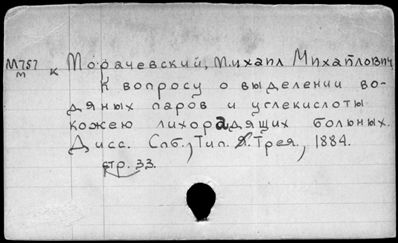 М757 к Морачевский, Михаил Михайлович
м
К вопросу о выделении во-
дяных паров и углекислоты
кожею лихорадящих больных.
Дисс. Спб., Тип. Я. Трея, 1884.
стр. 33.